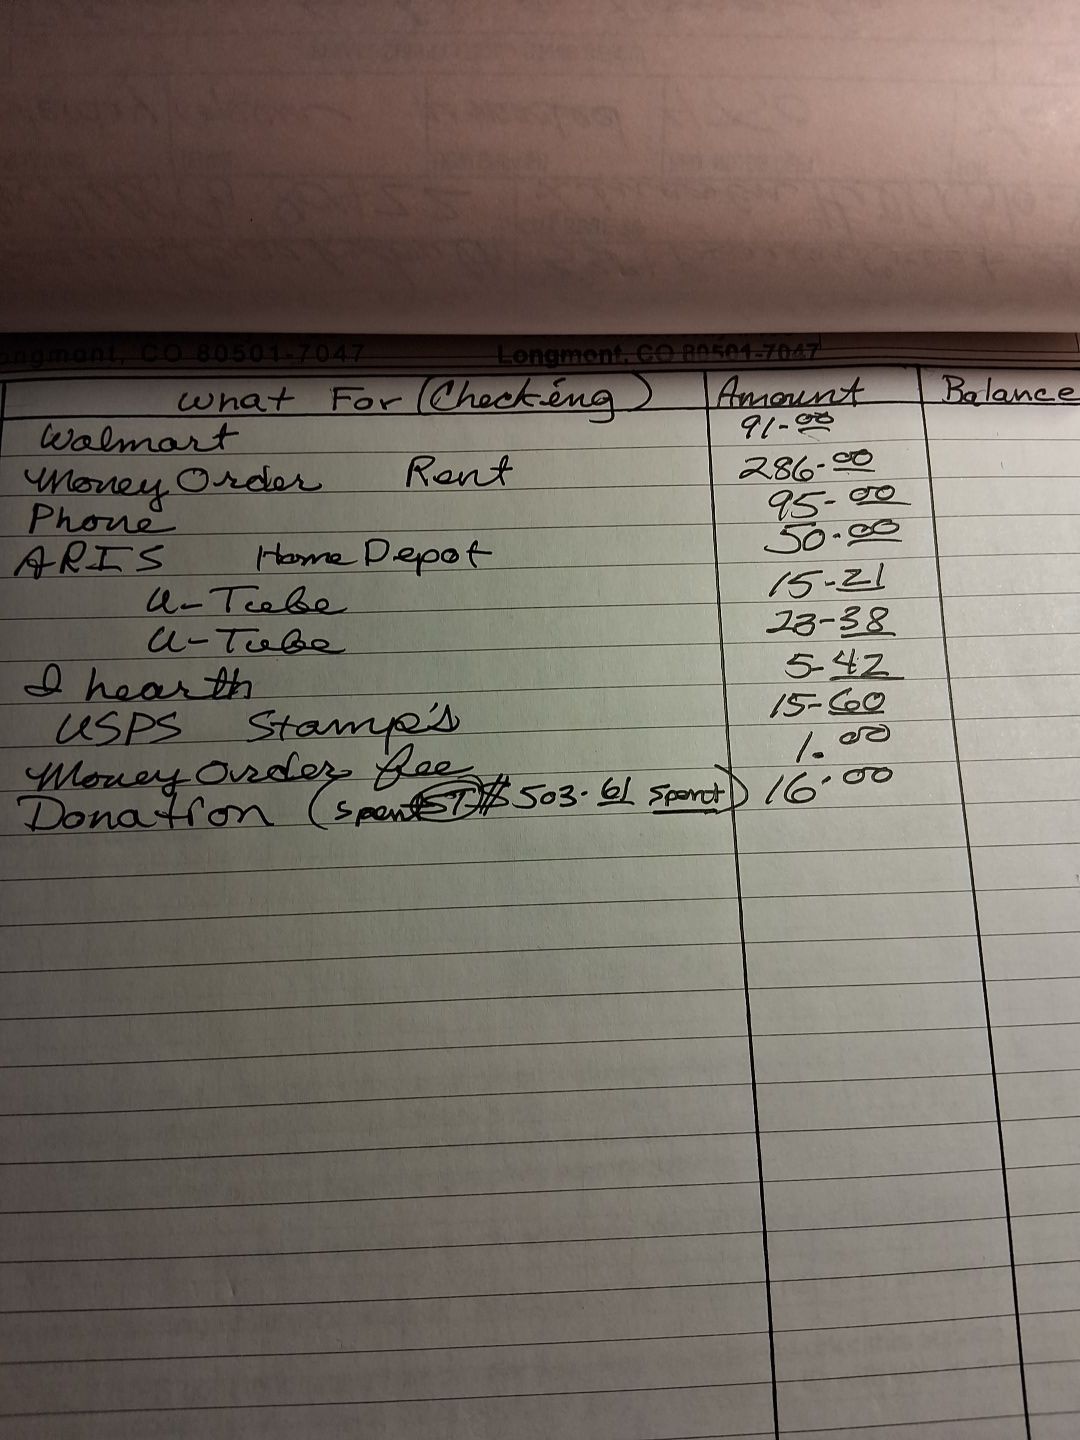 Longmont, CO 80501-7047 Longmont, CO 80501-7047
What For (Checking) Amount Balance
Walmart 91-00
Money Order Rent 286-00
Phone 95-00
ARIS Home Depot 50-00
U-Tube 15-21
U-Tube 23-38
I hearth 5-42
USPS Stamps's 15-60
Money Order fee 1.00
Donation (spent $503.61 spent) 16.00